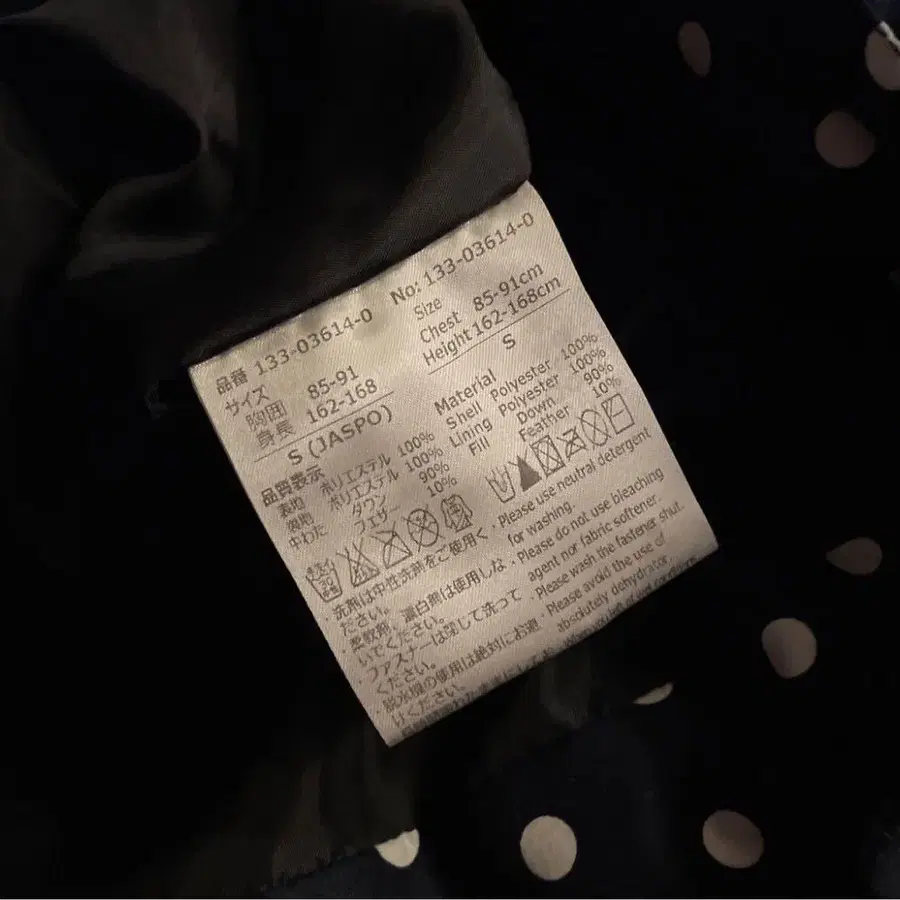 品番 133-03614-0
サイズ
胸囲 85-91
身長 162-168
S (JASPO)
品質表示
表地 ポリエステル 100%
裏地 ポリエステル 100%
中わた ダウン 90%
フェザー 10%
洗剤は中性洗剤をご使用く
ださい。
柔軟剤、漂白剤は使用しな
いでください。
・ファスナーは閉じて洗って
ください。
・脱水機の使用は絶対にお避
けください。
No: 133-03614-0
Size
Chest 85-91cm
Height 162-168cm
S
Material
Shell Polyester 100%
Lining Polyester 100%
Fill Down 90%
Feather 10%
・Please use neutral detergent
for washing.
・Please do not use bleaching
agent nor fabric softener.
・Please wash the fastener shut.
・Please avoid the use of
absolutely dehydrator.